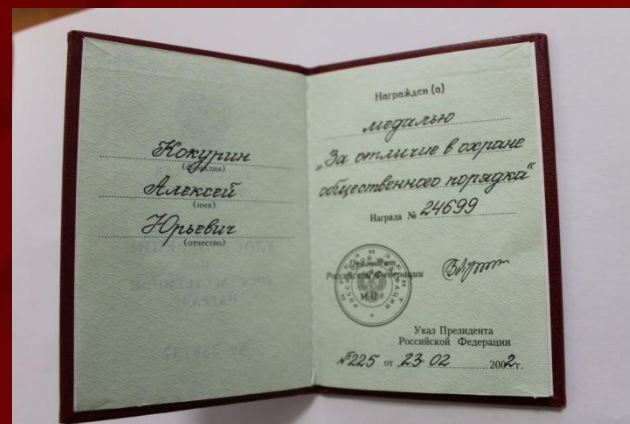 Кокурин
(фамилия)
Алексей
(имя)
Юрьевич
(отчество)
Награжден (а)
медалью
„За отличие в охране
общественного порядка“
Награда № 24699
Президент
Российской Федерации
М.П.
Указ Президента
Российской Федерации
№225 от 23 02 2002г.